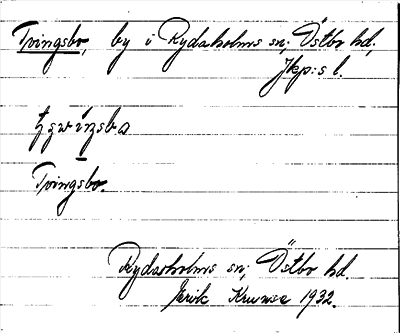 Tvingsbo, by i Rydaholms sn; Östbo hd,
Jkp:s l.
Tvingsbo.
Rydaholms sn; Östbo hd.
1932.